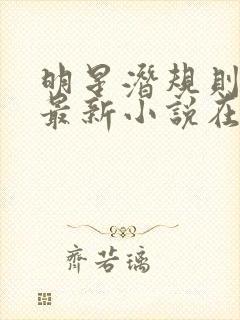 明星潜规则
最新小说在
齐若璃